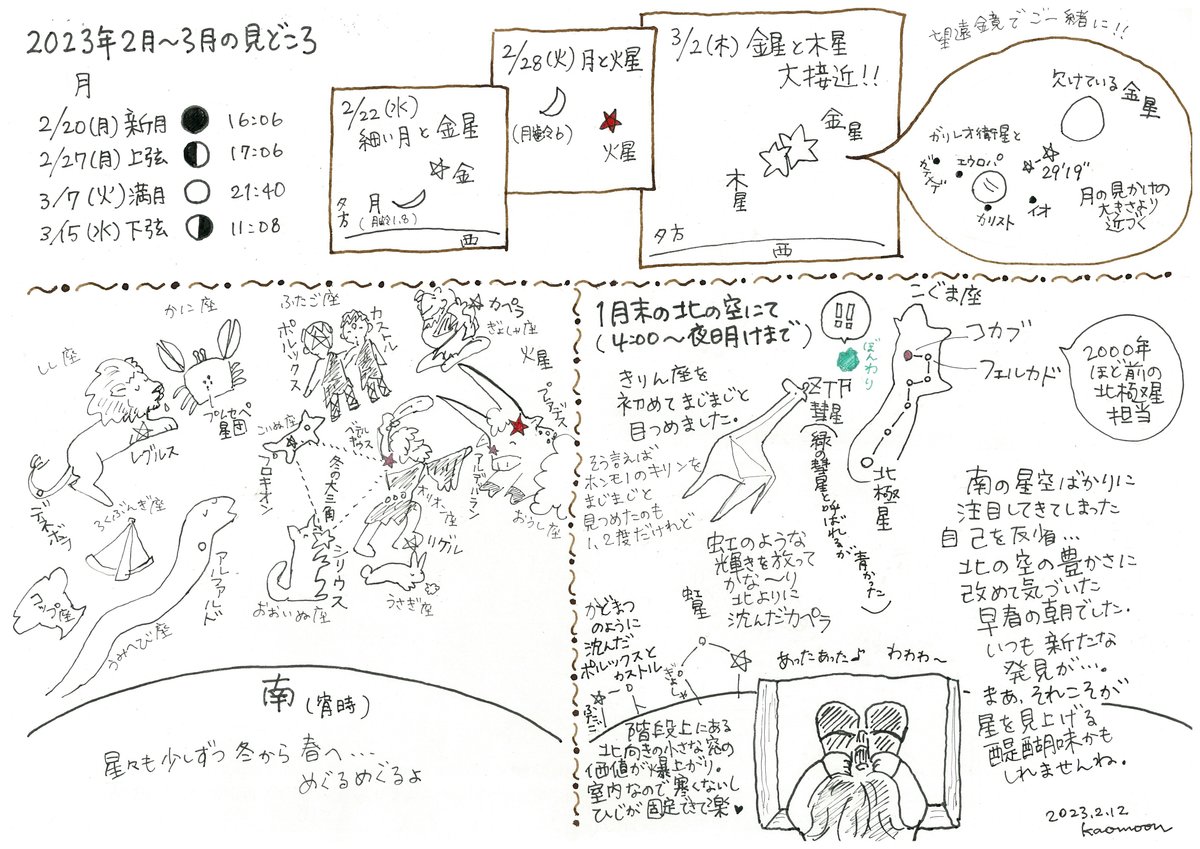 2023年2月～3月の見どころ
月
2/20(月) 新月 16:06
2/27(月) 上弦 17:06
3/7(火) 満月 21:40
3/15(水) 下弦 11:08
2/22(水)
細い月と金星
金
月
(月齢1.8)
夕方
西
2/28(火) 月と火星
(月齢6)
火星
3/2(木) 金星と木星
大接近!!
金星
木星
夕方
西
望遠鏡でご一緒に!!
欠けている金星
ガリレオ衛星と
ガニメデ
エウロパ
カリスト
イオ
29'19"
月の見かけの
大きさより
近づく
かに座
しし座
プレセペ
星団
レグルス
デネボラ
ふたご座
ポルックス
カストル
カペラ
ぎょしゃ座
火星
プレアデス
こいぬ座
プロキオン
ベテルギウス
冬の大三角
オリオン座
アルデバラン
おうし座
リゲル
シリウス
おおいぬ座
うさぎ座
ろくぶんぎ座
コップ座
アルファルド
うみへび座
南(宵時)
星々も少しずつ冬から春へ...
めぐるめぐるよ
1月末の北の空にて
(4:00～夜明けまで)
きりん座を
初めてまじまじと
見つめました。
そう言えば
ホンモノのキリンを
まじまじと
見つめたのも
1、2度だけれど
!!
ぼんわり
ZTF
彗星
(緑の彗星と呼ばれるが
青かった)
こぐま座
コカブ
フェルカド
北極星
2000年
ほど前の
北極星
担当
虹のような
輝きを放って
かな～り
北よりに
沈んだカペラ
虹星
ぎょしゃ
かどまつ
のように
沈んだ
ポルックスと
カストル
ふたご
階段上にある
北向きの小さな窓の
価値が爆上がり。
室内なので寒くないし
ひじが固定できて楽♥
あったあった♪
わわわ～
南の星空ばかりに
注目してきてしまった
自己を反省...
北の空の豊かさに
改めて気づいた
早春の朝でした。
いつも新たな
発見が...。
まあ、それこそが
星を見上げる
醍醐味かも
しれませんね。
2023.2.12
kaomoon